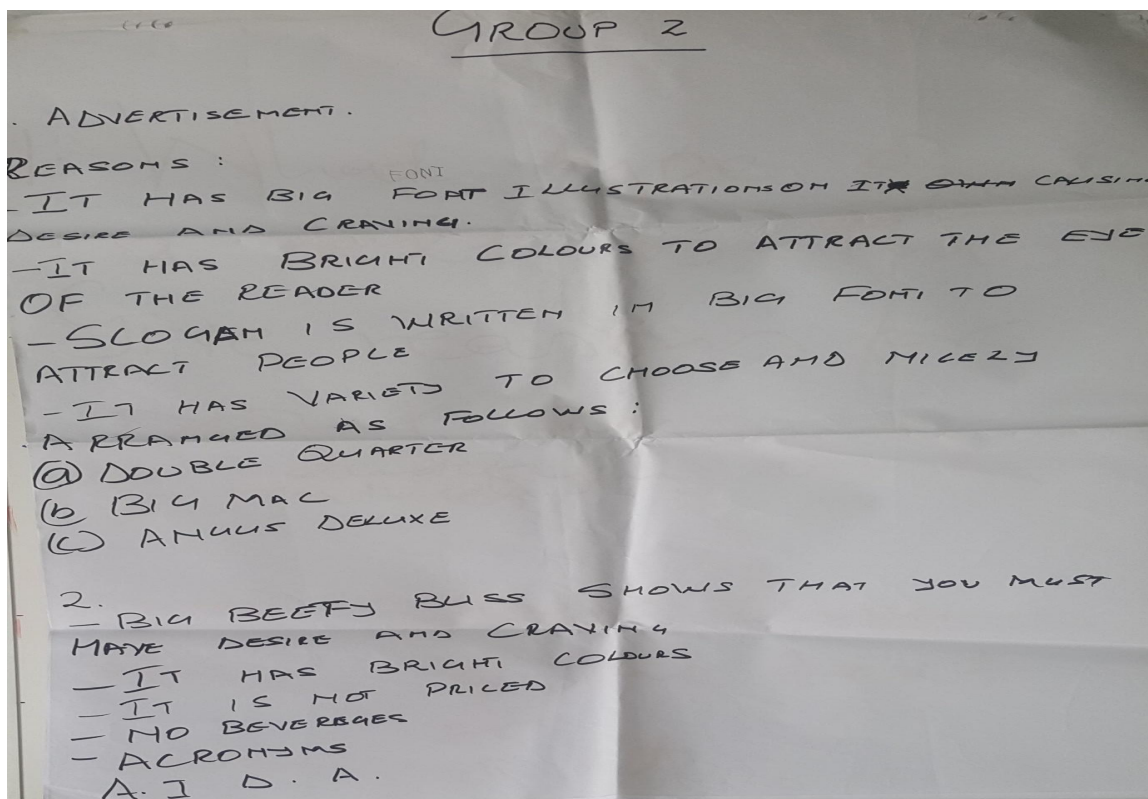 GROUP 2
. ADVERTISEMENT.
REASONS :
FONT
- IT HAS BIG FONT ILLUSTRATIONS ON IT CAUSING
DESIRE AND CRAVING.
- IT HAS BRIGHT COLOURS TO ATTRACT THE EYE
OF THE READER
- SLOGAN IS WRITTEN IN BIG FONT TO
ATTRACT PEOPLE
- IT HAS VARIETY TO CHOOSE AND NICELY
ARRANGED AS FOLLOWS :
(a) DOUBLE QUARTER
(b BIG MAC
(c) ANGUS DELUXE
2.
- BIG BEEFY BLISS SHOWS THAT YOU MUST
HAVE DESIRE AND CRAVING
- IT HAS BRIGHT COLOURS
- IT IS NOT PRICED
- NO BEVEREGES
- ACRONYMS
A. I D. A.